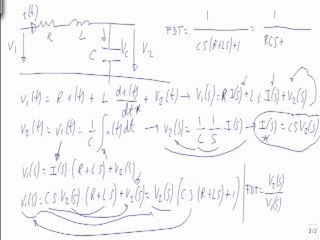 i(t)
R
L
V₁
C
Vc
V₂
FDT = 1 / (CS(R+LS)+1) = 1 / (RCS+
V₁(t) = R i(t) + L di(t)/dt + V₂(t) → V₁(s) = R I(s) + L s I(s) + V₂(s)
V₂(t) = Vc(t) = 1/C ∫ i(t) dt → V₂(s) = 1/C 1/S · I(s) → I(s) = CS V₂(s)
V₁(s) = I(s) · (R+LS) + V₂(s)
V₁(s) = CS · V₂(s) · (R+LS) + V₂(s) = V₂(s) (CS(R+LS)+1)
FDT = V₂(s) / V₁(s)
2/2